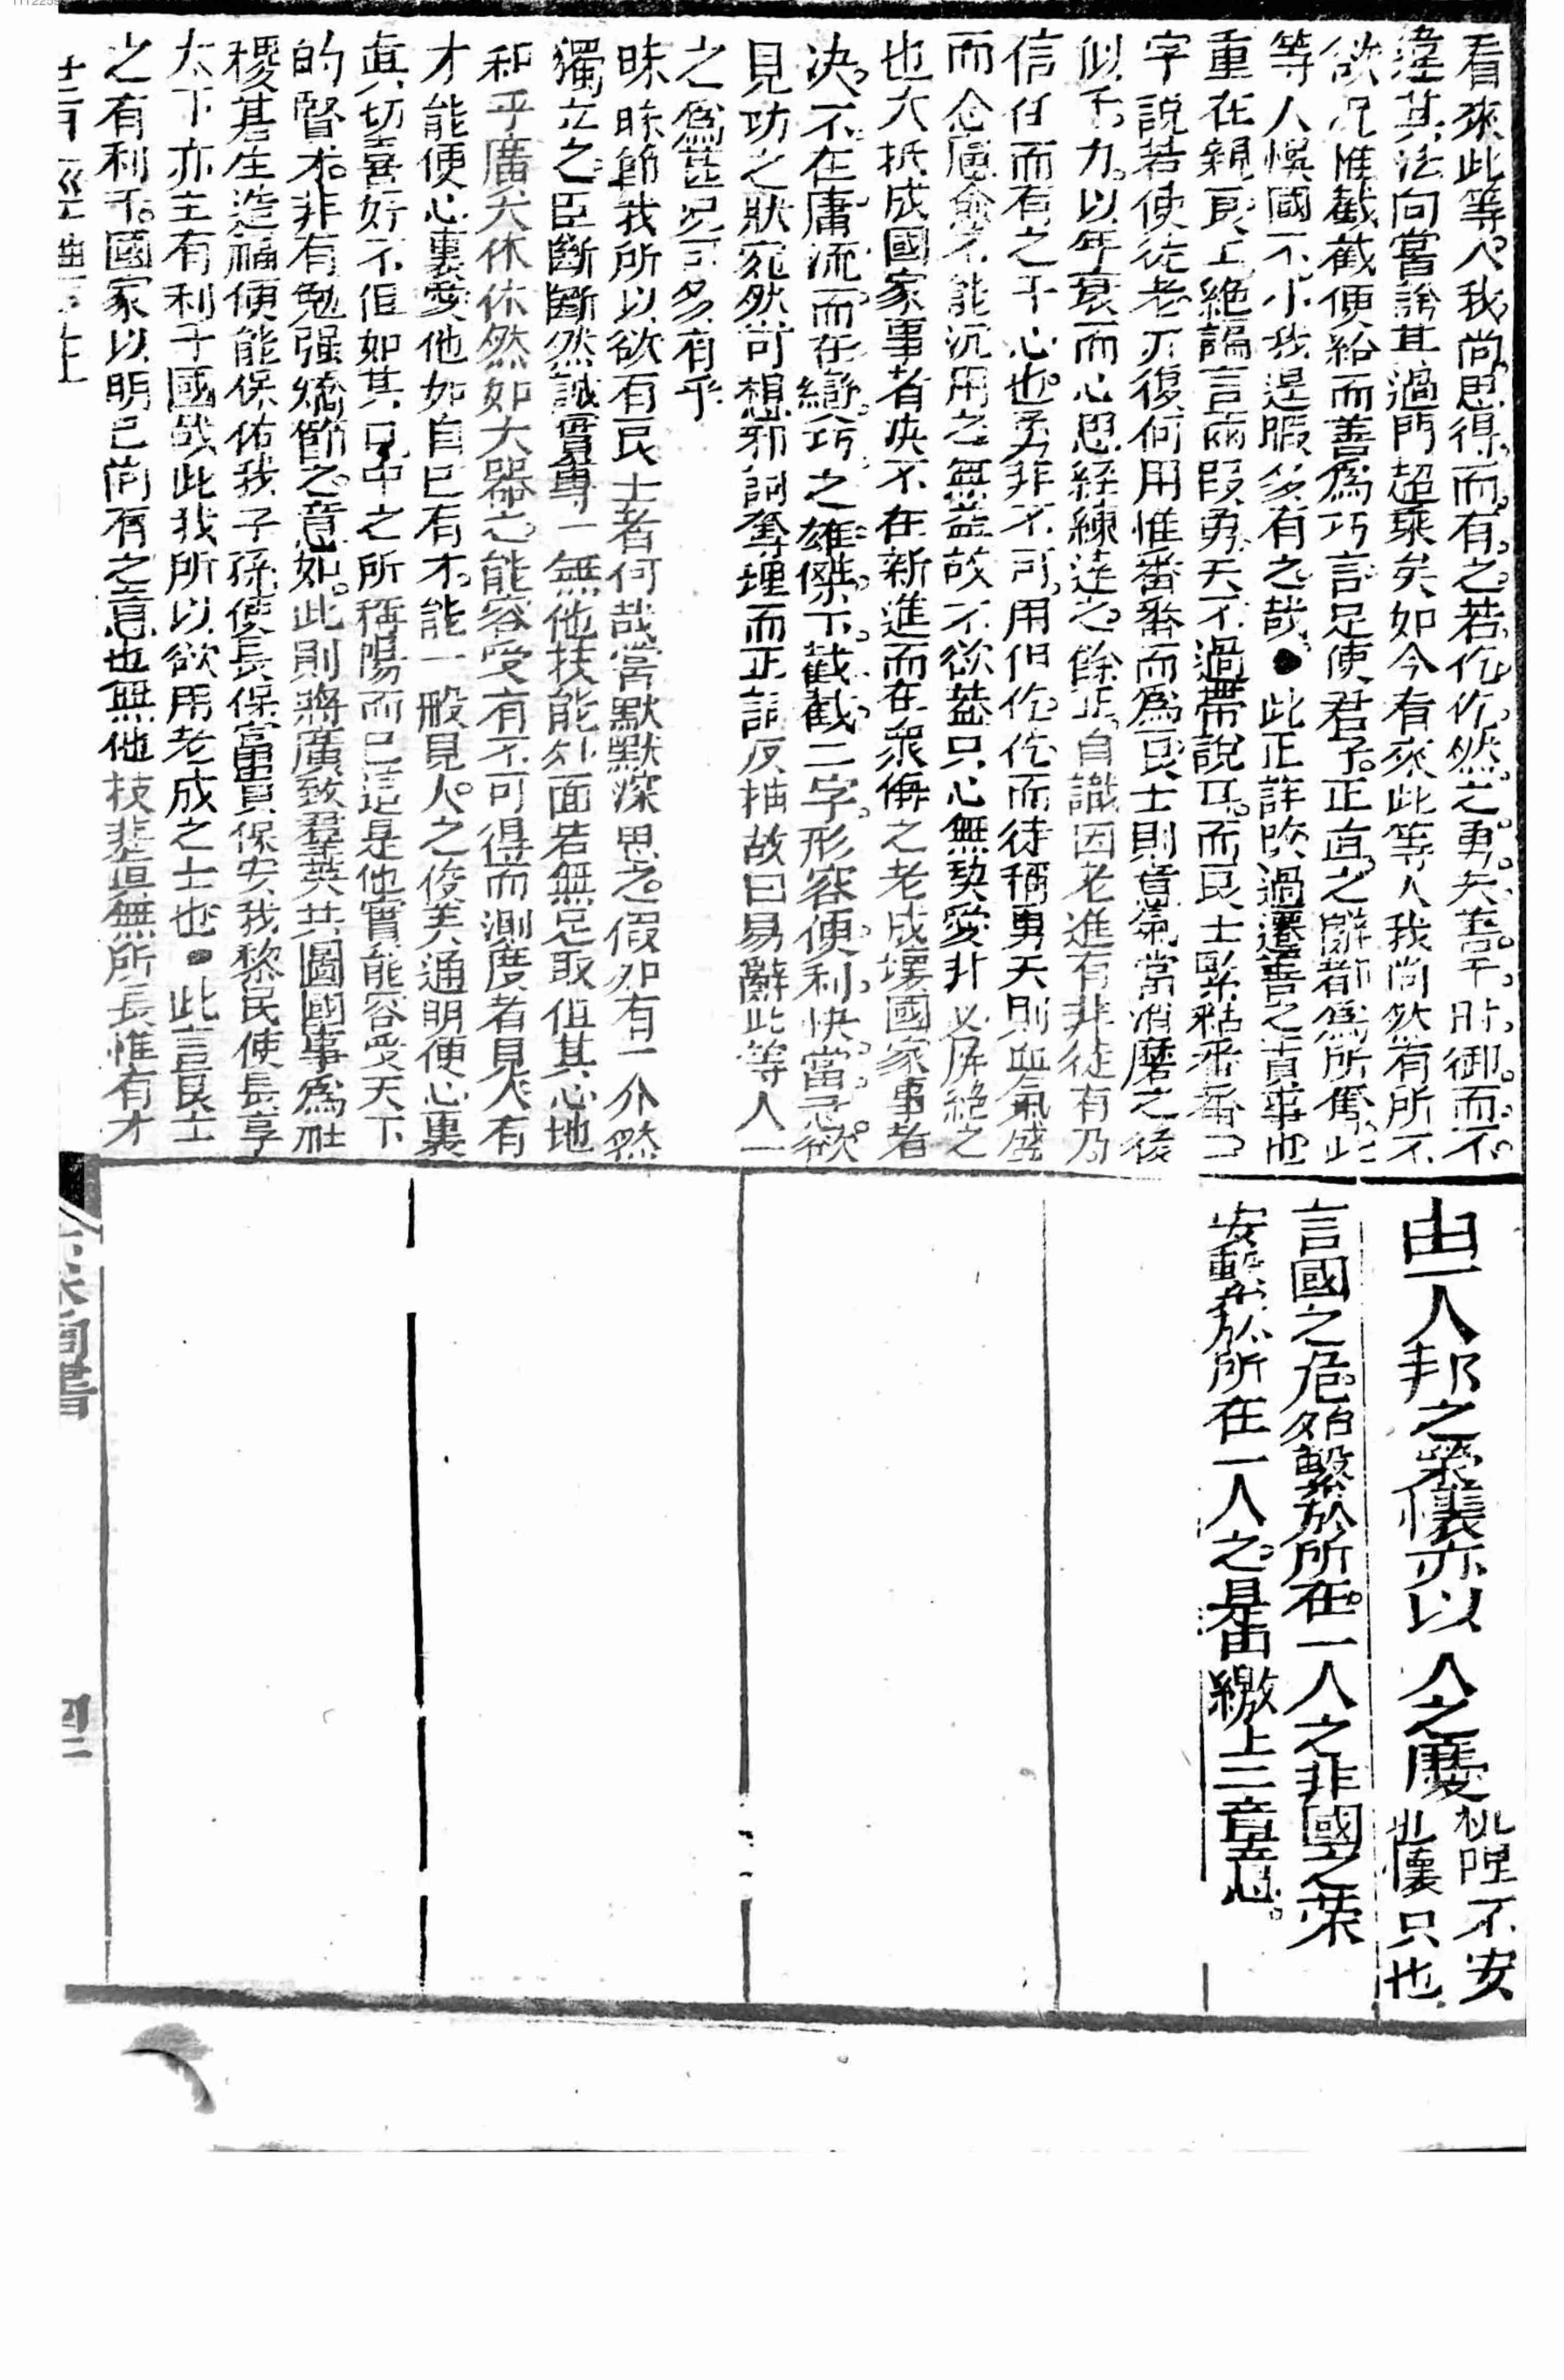 看來此等人我尚思得而有之若仡仡然之勇夫善于射御而不
違其法向嘗說其過門超乘矣如今有來此等人我尚然有所不
欲况惟截截便給而善為巧言足使君子正直之辭都為所奪此
等人悞國不小我遑暇多有之哉●此正詳改過遷善之實事也
重在親良上絶謅言兩段勇夫不過帶說耳而良士緊粘番番二
字說若使徒老亦復何用惟番番而為良士則意氣當消磨之後
似乎力以年衰而心思經練達之餘正自識因老進有非徒有乃
信任而有之于心也勇非不可用但仡仡而徒稱勇夫則血氣盛
而念慮愈不能沉用之無益故不欲葢只心無契愛非必屏絶之
也大抵成國家事者决不在新進而在衆侮之老成壞國家事者
决不在庸流而在纔巧之雄傑下截截二字形容便利快當恣欲
見功之狀宛然可想邪詞奪理而正詞反拙故曰易辭此等人一
之為甚况可多有乎
昧昧節我所以欲有良士者何哉嘗默默深思之假如有一介然
獨立之臣斷斷然誠實專一無他技能外面若無足取但其心地
和乎廣大休休然如大器之能容受有不可得而測度者見人有
才能便心裏愛他如自已有才能一般見人之俊美通明便心裏
真切喜好不但如其口中之所稱陽而已這是他實能容受天下
的賢才非有勉强矯飾之意如此則將廣致羣英共圖國事為社
稷基生造福便能保佑我子孫使長保富貴保安我黎民使長享
太下亦主有利于國哉此我所以欲用老成之士也●此言良士
之有利于國家以明已尚有之意也無他技非真無所長惟有才
由一人邦之榮懷亦以 人之慶 杌隉不安
此懷只也
言國之危殆繫於所在一人之非國之榮
安繫於所在一人之是申繳上二章意
尚書
四二